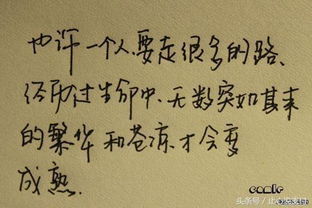 也许一个人要走很多的路、
经历过生命中、无数突如其来
的繁华和苍凉才会变
成熟.
comic